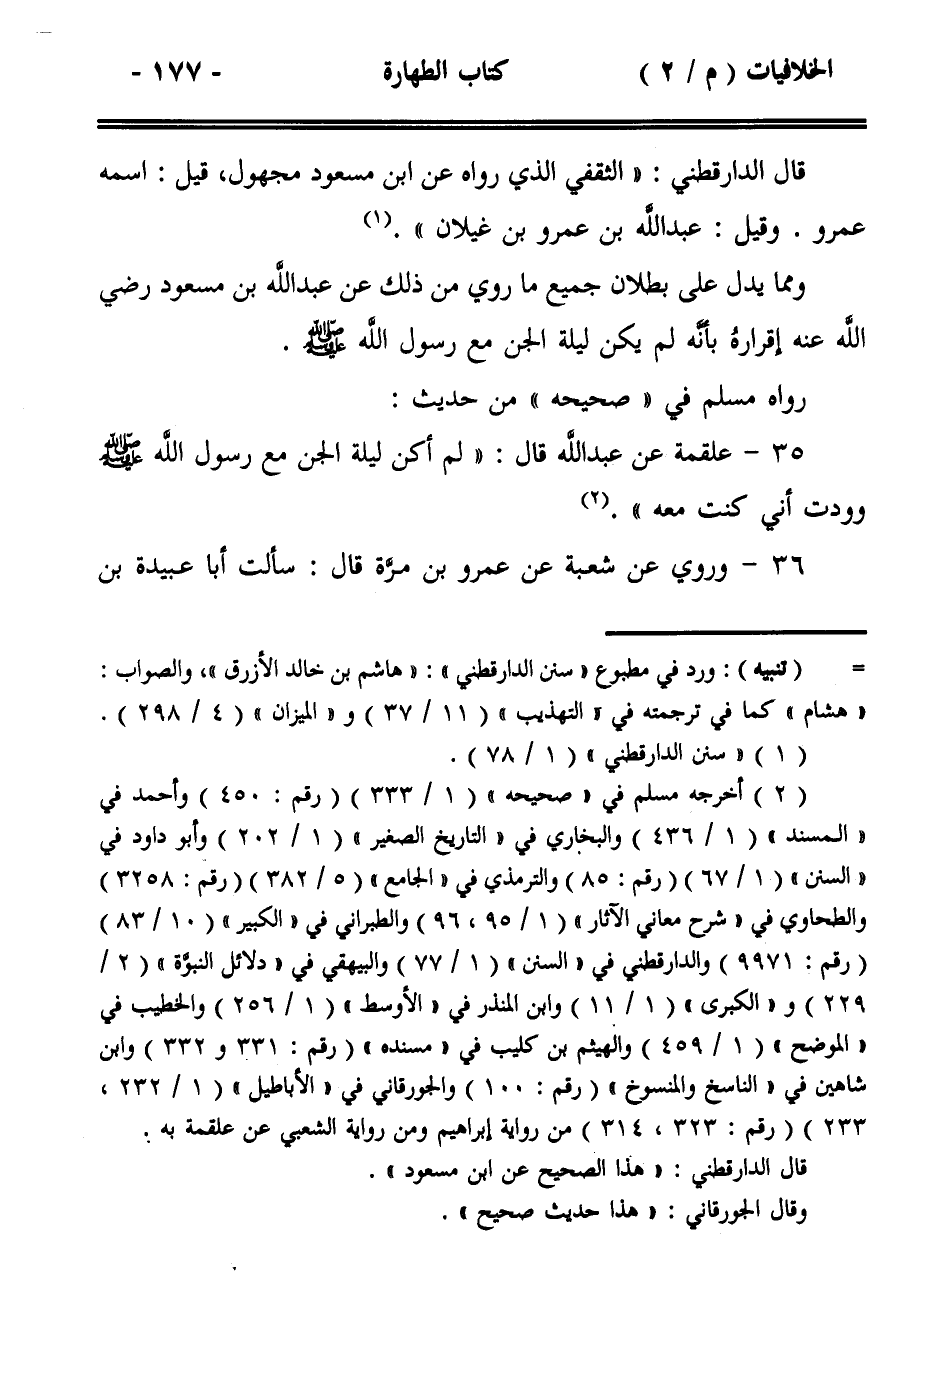 الخلافيات ( م / ٢ ) كتاب الطهارة - ١٧٧ -
قال الدارقطني : « الثقفي الذي رواه عن ابن مسعود مجهول، قيل : اسمه
عمرو . وقيل : عبداللَّه بن عمرو بن غيلان » .(١)
ومما يدل على بطلان جميع ما روي من ذلك عن عبداللَّه بن مسعود رضي
اللَّه عنه إقرارهُ بأنَّه لم يكن ليلة الجن مع رسول اللَّه ﷺ .
رواه مسلم في « صحيحه » من حديث :
٣٥ - علقمة عن عبداللَّه قال : « لم أكن ليلة الجن مع رسول اللَّه ﷺ
وودت أني كنت معه » .(٢)
٣٦ - وروي عن شعبة عن عمرو بن مرَّة قال : سألت أبا عبيدة بن
= ( تنبيه ) : ورد في مطبوع « سنن الدارقطني » : « هاشم بن خالد الأزرق »، والصواب :
« هشام » كما في ترجمته في « التهذيب » ( ١١ / ٣٧ ) و « الميزان » ( ٤ / ٢٩٨ ) .
( ١ ) « سنن الدارقطني » ( ١ / ٧٨ ) .
( ٢ ) أخرجه مسلم في « صحيحه » ( ١ / ٣٣٣ ) ( رقم : ٤٥٠ ) وأحمد في
« المسند » ( ١ / ٤٣٦ ) والبخاري في « التاريخ الصغير » ( ١ / ٢٠٢ ) وأبو داود في
« السنن » ( ١ / ٦٧ ) ( رقم : ٨٥ ) والترمذي في « الجامع » ( ٥ / ٣٨٢ ) ( رقم : ٣٢٥٨ )
والطحاوي في « شرح معاني الآثار » ( ١ / ٩٥ ، ٩٦ ) والطبراني في « الكبير » ( ١٠ / ٨٣ )
( رقم : ٩٩٧١ ) والدارقطني في « السنن » ( ١ / ٧٧ ) والبيهقي في « دلائل النبوَّة » ( ٢ /
٢٢٩ ) و « الكبرى » ( ١ / ١١ ) وابن المنذر في « الأوسط » ( ١ / ٢٥٦ ) والخطيب في
« الموضح » ( ١ / ٤٥٩ ) والهيثم بن كليب في « مسنده » ( رقم : ٣٣١ و ٣٣٢ ) وابن
شاهين في « الناسخ والمنسوخ » ( رقم : ١٠٠ ) والجورقاني في « الأباطيل » ( ١ / ٢٣٢ ،
٢٣٣ ) ( رقم : ٣٢٣ ، ٣١٤ ) من رواية إبراهيم ومن رواية الشعبي عن علقمة به .
قال الدارقطني : « هذا الصحيح عن ابن مسعود » .
وقال الجورقاني : « هذا حديث صحيح » .